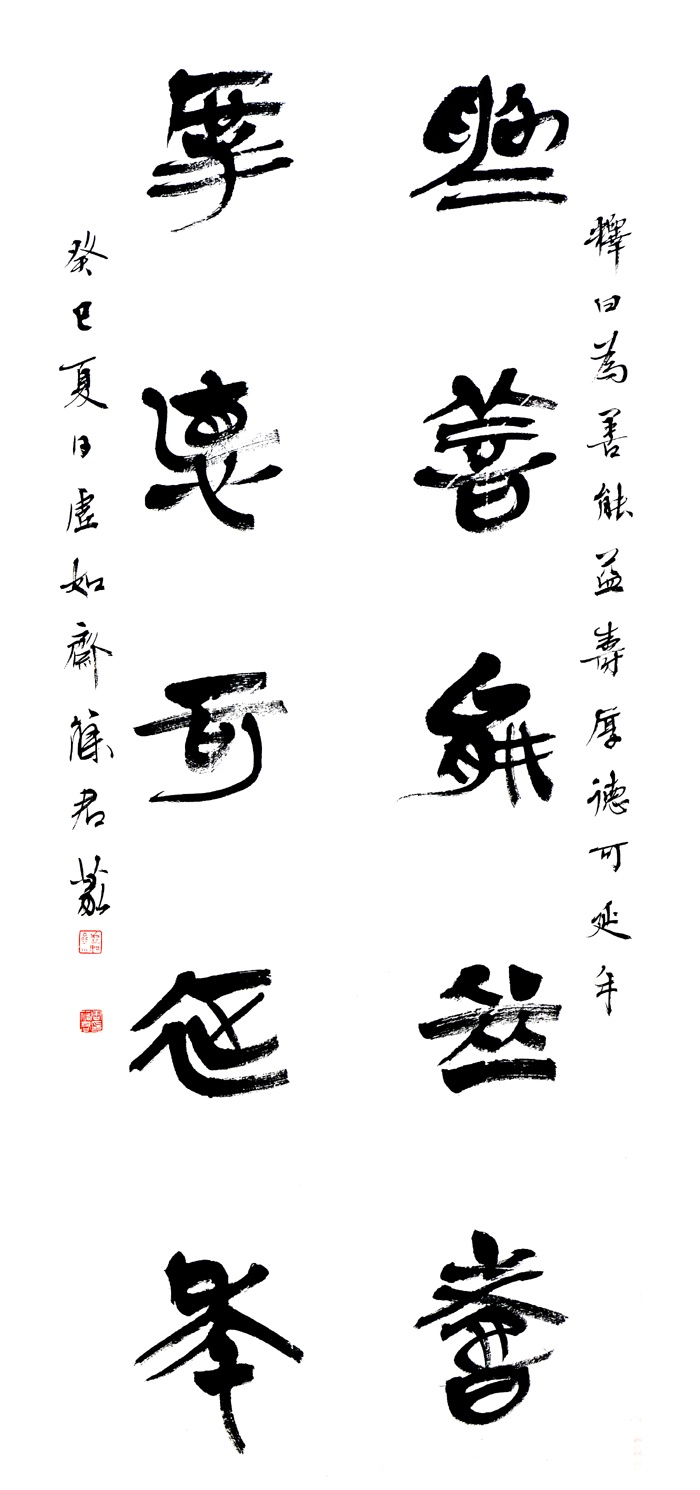 釋曰為善能益壽厚德可延年
為善能益壽
厚德可延年
癸巳夏日虛如齋篆君